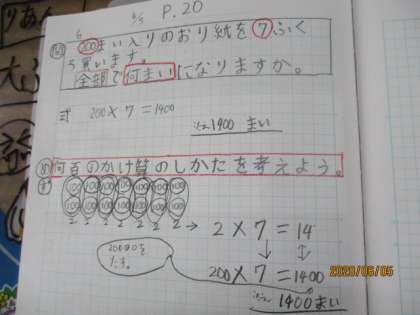 6/5 P.20
問 200まい入りのおり紙を7ふく
ろ買います。
全部で何まいになりますか。
式 200×7=1400
答え1400まい
め 何百のかけ算のしかたを考えよう。
100 100 100 100 100 100 100
100 100 100 100 100 100 100
2 2 2 2 2 2 2 → 2×7=14
200×7=1400
答え1400まい
2020/06/05